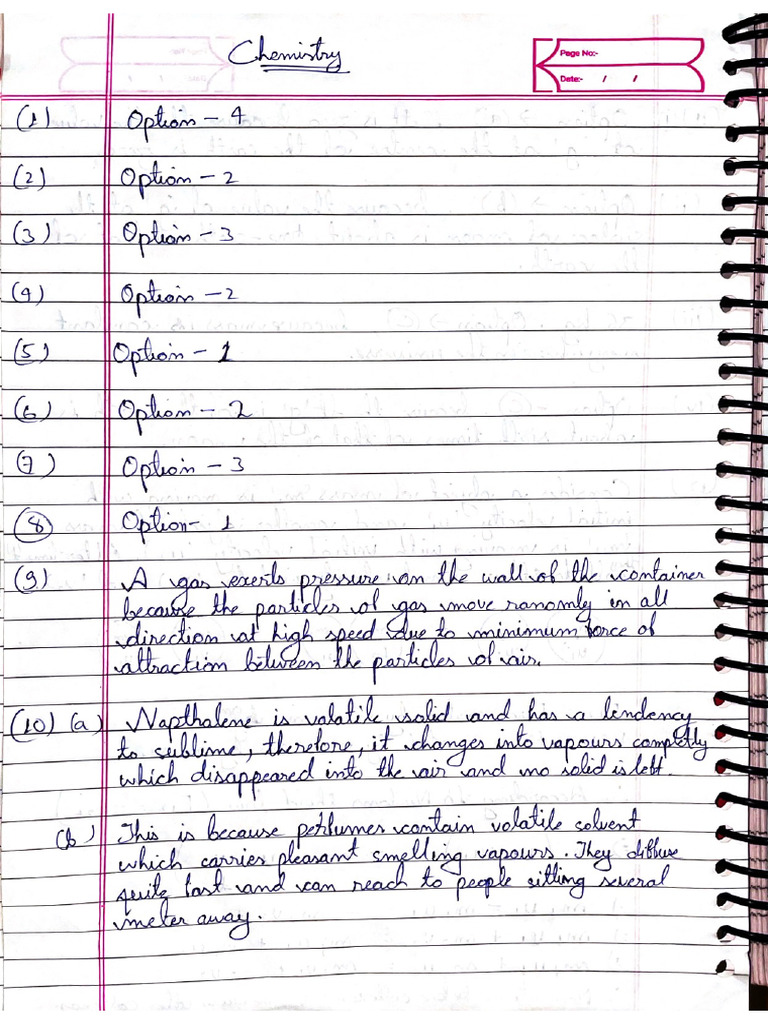 Chemistry
Page No:-
Date:- / /
(1) Option - 4
(2) Option - 2
(3) Option - 3
(4) Option - 2
(5) Option - 1
(6) Option - 2
(7) Option - 3
(8) Option - 1
(9) A gas exerts pressure on the wall of the container
because the particles of gas move ranomly in all
direction at high speed due to minimum force of
attraction between the particles of air.
(10) (a) Napthalene is volatile solid and has a tendency
to sublime, therefore, it changes into vapours completly
which disappeared into the air and no solid is left.
(b) This is because perfumes contain volatile solvent
which carries pleasant smelling vapours. They diffuse
quite fast and can reach to people sitting several
meter away.